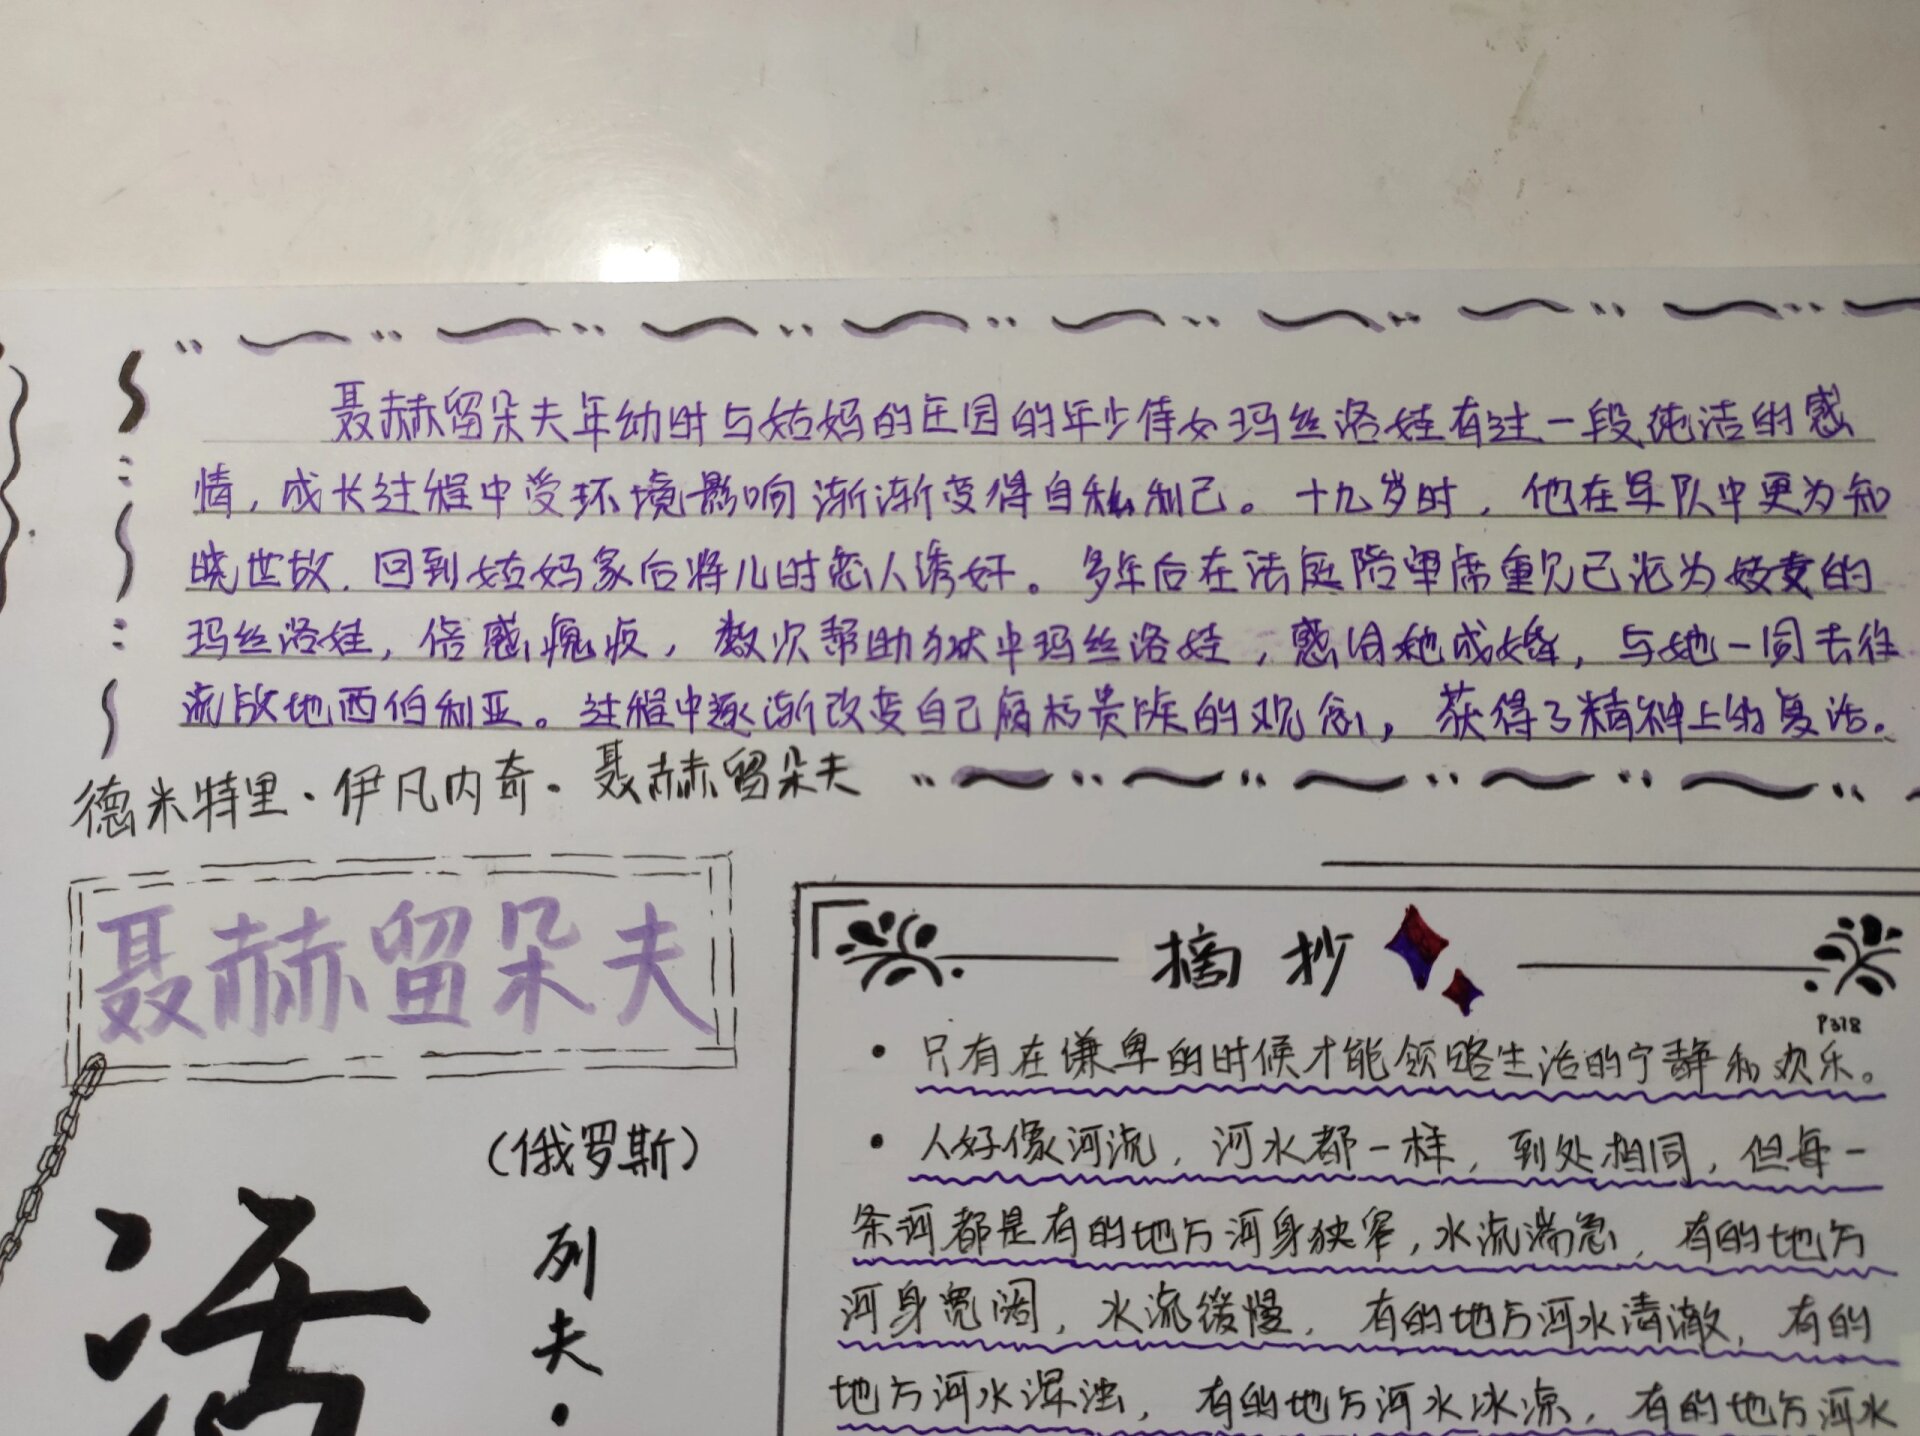 聂赫留朵夫年幼时与姑妈的庄园的年少侍女玛丝洛娃有过一段纯洁的感
情，成长过程中受环境影响渐渐变得自私利己。十九岁时，他在军队中更为知
晓世故，回到姑妈家后将儿时恋人诱奸。多年后在法庭陪审席重见已沦为妓女的
玛丝洛娃，倍感愧疚，数次帮助狱中玛丝洛娃，愿与她成婚，与她一同去往
流放地西伯利亚。过程中逐渐改变自己腐朽贵族的观念，获得了精神上的复活。
德米特里·伊凡内奇·聂赫留朵夫
聂赫留朵夫
（俄罗斯）
列夫·
活
摘抄
P318
·只有在谦卑的时候才能领略生活的宁静和欢乐。
·人好像河流，河水都一样，到处相同，但每一
条河都是有的地方河身狭窄，水流湍急，有的地方
河身宽阔，水流缓慢，有的地方河水清澈，有的
地方河水浑浊，有的地方河水冰凉，有的地方河水